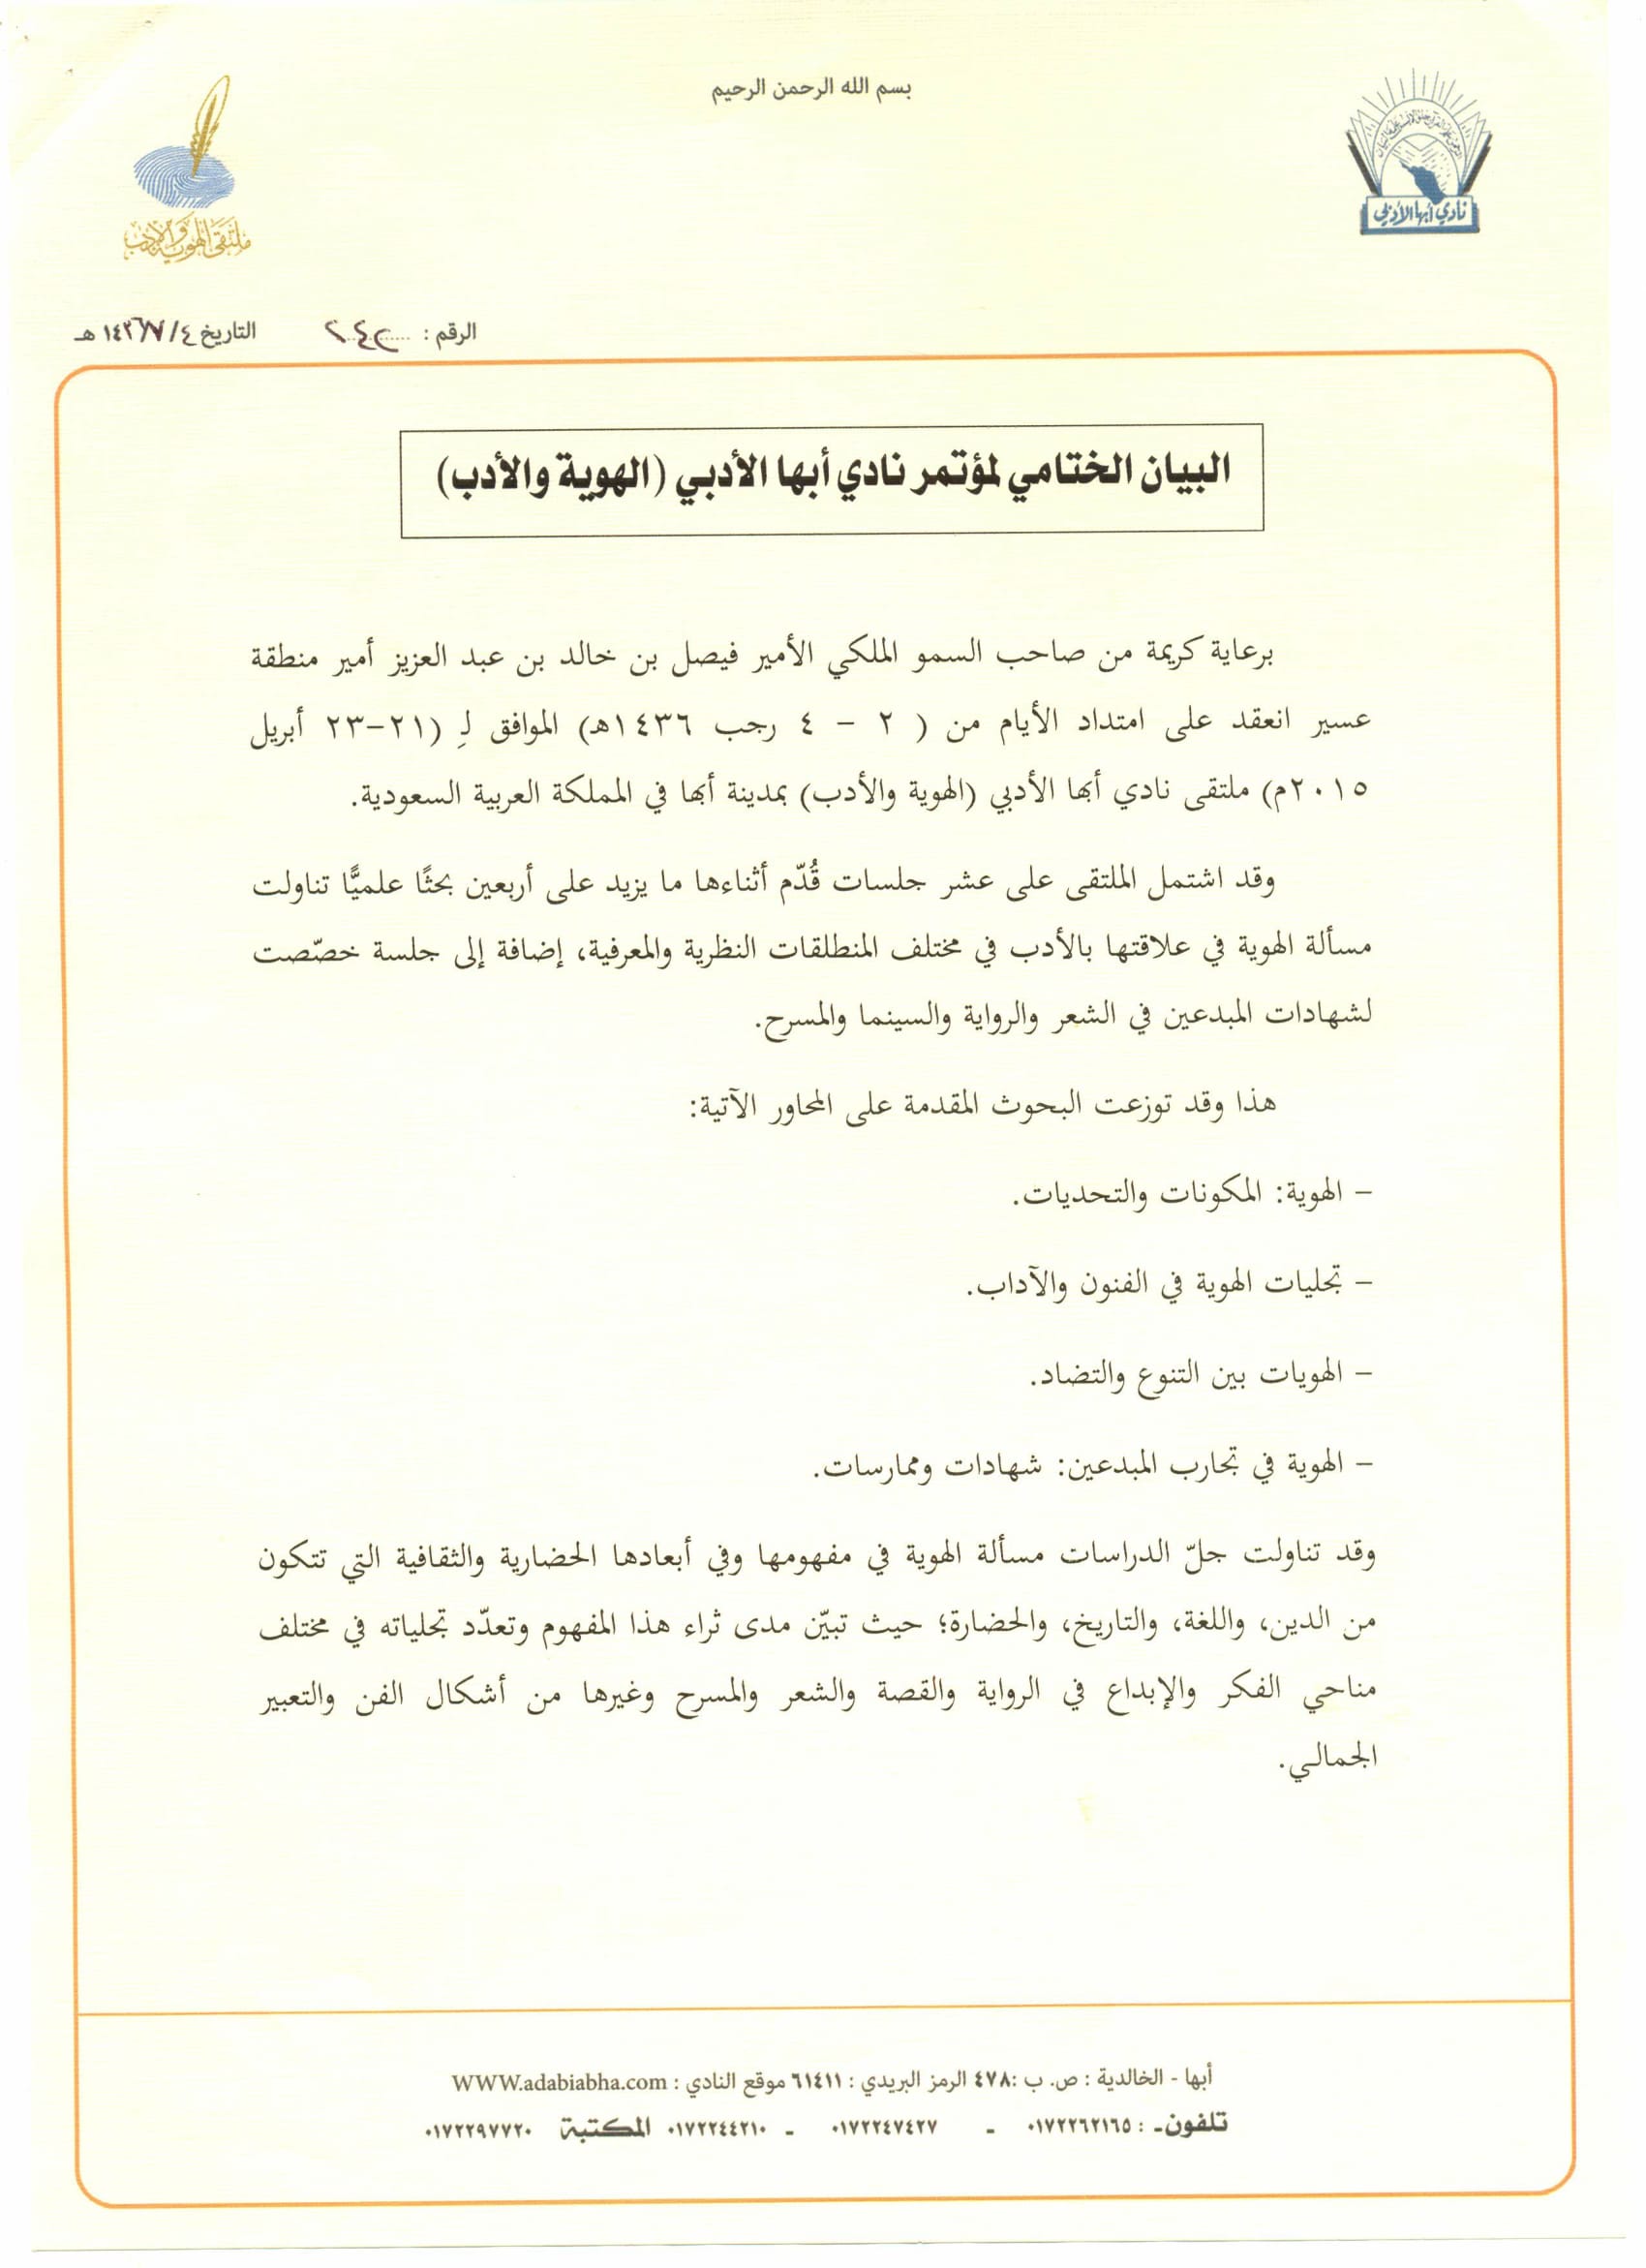 بسم الله الرحمن الرحيم
نادي أبها الأدبي
ملتقى الهوية والأدب
الرقم : التاريخ ١٤٣٦/٧/٤ هـ
البيان الختامي لمؤتمر نادي أبها الأدبي (الهوية والأدب)
برعاية كريمة من صاحب السمو الملكي الأمير فيصل بن خالد بن عبد العزيز أمير منطقة
عسير انعقد على امتداد الأيام من ( ٢ – ٤ رجب ١٤٣٦هـ) الموافق لِـ (٢١-٢٣ أبريل
٢٠١٥م) ملتقى نادي أبها الأدبي (الهوية والأدب) بمدينة أبها في المملكة العربية السعودية.
وقد اشتمل الملتقى على عشر جلسات قُدّم أثناءها ما يزيد على أربعين بحثًا علميًّا تناولت
مسألة الهوية في علاقتها بالأدب في مختلف المنطلقات النظرية والمعرفية، إضافة إلى جلسة خصّصت
لشهادات المبدعين في الشعر والرواية والسينما والمسرح.
هذا وقد توزعت البحوث المقدمة على المحاور الآتية:
– الهوية: المكونات والتحديات.
– تجليات الهوية في الفنون والآداب.
– الهويات بين التنوع والتضاد.
– الهوية في تجارب المبدعين: شهادات وممارسات.
وقد تناولت جلّ الدراسات مسألة الهوية في مفهومها وفي أبعادها الحضارية والثقافية التي تتكون
من الدين، واللغة، والتاريخ، والحضارة؛ حيث تبيّن مدى ثراء هذا المفهوم وتعدّد تجلياته في مختلف
مناحي الفكر والإبداع في الرواية والقصة والشعر والمسرح وغيرها من أشكال الفن والتعبير
الجمالي.
أبها - الخالدية : ص. ب :٤٧٨ الرمز البريدي : ٦١٤١١ موقع النادي : WWW.adabiabha.com
تلفون- : ٠١٧٢٢٦٢١٦٥ - ٠١٧٢٢٤٧٤٢٧ - ٠١٧٢٢٤٤٢١٠ المكتبة ٠١٧٢٢٩٧٧٢٠